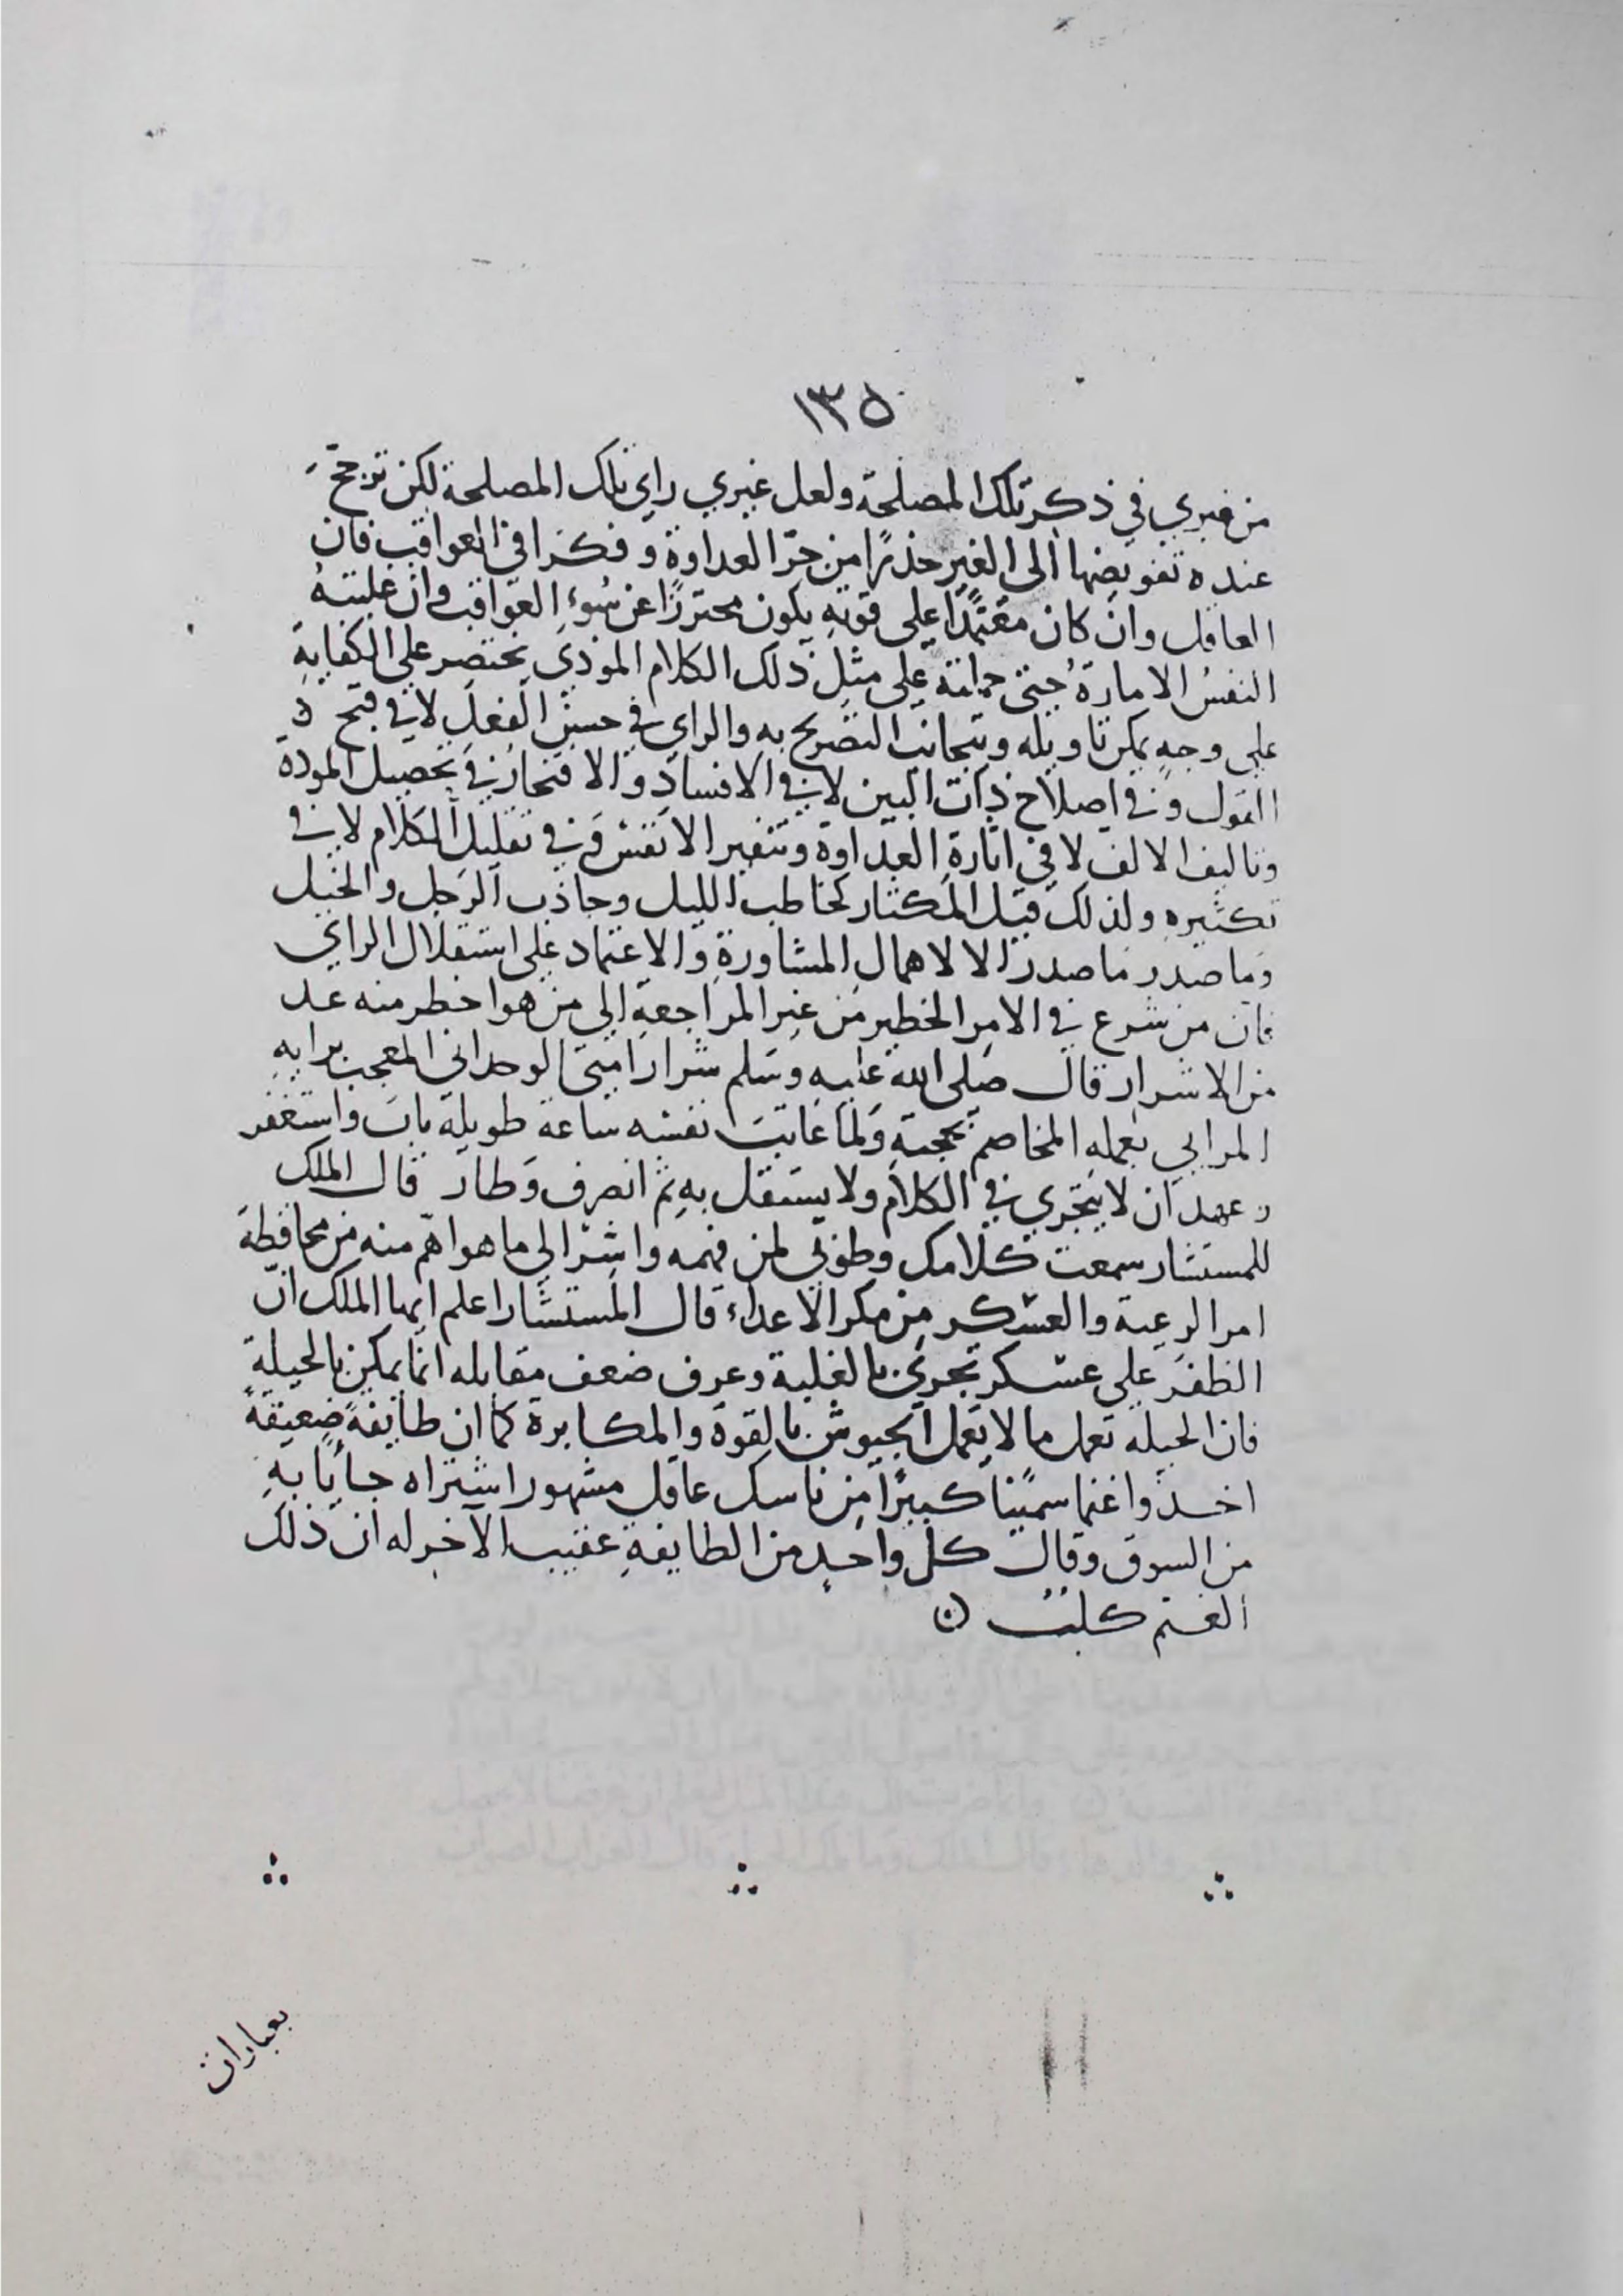 ١٣٥
من غيري في ذكر تلك المصلحة ولعل غيري راي تلك المصلحة لكن ترجح
عنده تفويضها الى الغير حذرًا من جرّ العداوة وفكرا في العواقب فان
العاقل وان كان مقتدًا على قوته يكون محترزًا عن سُوءِ العواقب وان غلبته
النفسُ الامارة حتى حملته على مثل ذلك الكلام الموذي يختصر على الكفاية
على وجهٍ يمكن تاويله ويتجانب التصريح به والراي في حسن الفعل لا في قبح
القول وفي اصلاح ذات البين لا في الافساد والافتخار في تحصيل المودة
وتاليف الالف لا في اثارة العداوة وتنفير الانفس وفي تقليل الكلام لا في
تكثيره ولذلك قيل المكثار كحاطب الليل وجاذب الرجل والخيل
وما صدر ما صدر الا لاهمال المشاورة والاعتماد على استقلال الراي
فان من شرع في الامر الخطير من غير المراجعة الي من هو اخطر منه عد
من الاشرار قال صلى الله عليه وسلم شرار امتى الوحدانى المعجب برايه
المرايي بعمله المخاصم بحجته ولما عاتبت نفسه ساعة طويلة تاب واستغفر
وعهد ان لا يتجري في الكلام ولا يستقل به ثم انصرف وطار قال الملك
للمستشار سمعت كلامك وطوبي لمن فهمه واشر الي ما هو اهم منه من محافظة
امر الرعية والعسكر من مكر الاعداء قال المستشار اعلم ايها الملك انّ
الظفر على عسكر تجري بالغلبة وعرف ضعف مقابله انما يمكن بالحيلة
فان الحيلة تعمل ما لا يعمل الجيوش بالقوة والمكابرة كما ان طايفةً ضعيفةً
اخذوا غنما سمينا كبيرًا من ناسك عاقل مشهور اشتراه جايًا به
من السوق وقال كل واحدٍ من الطايفةِ عقيب الآخر له ان ذلك
الغنم كلبٌ
بعبارات